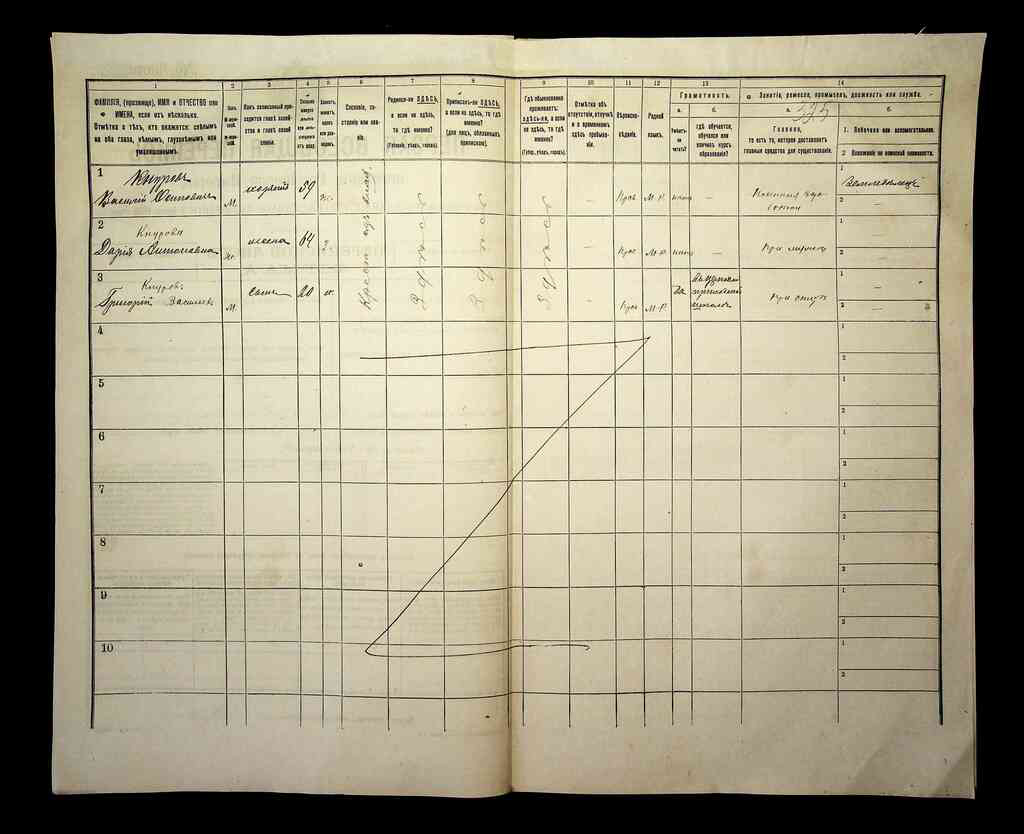 1 2 3 4 5 6 7 8 9 10 11 12 13 14
ФАМИЛІЯ, (прозвище), ИМЯ и ОТЧЕСТВО или
ИМЕНА, если ихъ нѣсколько.
Отмѣтка о тѣхъ, кто окажется: слѣпымъ
на оба глаза, нѣмымъ, глухонѣмымъ или
умалишеннымъ.
Полъ.
М-мужской.
Ж-женскій.
Какъ записанный приходится главѣ хозяйства и главѣ своей семьи.
Сословіе, состояніе или званіе.
Родился-ли ЗДѢСЬ,
а если не здѣсь,
то гдѣ именно?
(Губернія, уѣздъ, городъ).
Приписанъ-ли ЗДѢСЬ,
а если не здѣсь, то гдѣ
именно?
(для лицъ, обязанныхъ
припиской).
Гдѣ обыкновенно
проживаетъ:
ЗДѢСЬ-ЛИ, а если
не здѣсь, то гдѣ
именно?
(Губер., уѣздъ, городъ).
Отмѣтка объ
отсутствіи, отлучкѣ
и о временномъ
здѣсь пребываніи.
Вѣроисповѣданіе.
Родной
языкъ.
Грамотность.
а.
Умѣетъ-ли
читать?
б.
гдѣ обучается,
обучался или
кончилъ курсъ
образованія?
Занятіе, ремесло, промыселъ, должность или служба.
а.
Главное,
то есть то, которое доставляетъ
главныя средства для существованія.
б.
1. Побочное или вспомогательное.
2. Положеніе по воинской повинности.
1
Кнуровъ
Василій Осиповичъ
М.
хозяинъ
59
Крест изъ влад
Здѣсь
Здѣсь
Здѣсь
—
Прав
М.Р.
нѣтъ
—
1
Земледѣлецъ
2
—
2
Кнурова
Дарія Антоновна
Ж.
жена
64
—
Прав
М.Р.
нѣтъ
—
При мужѣ
1
—
2
—
3
Кнуровъ
Григорій Васильев
М.
сынъ
20
—
Прав
М.Р.
Да
школѣ
При отцѣ
1
—
2
—
4
1
2
5
1
2
6
1
2
7
1
2
8
1
2
9
1
2
10
1
2